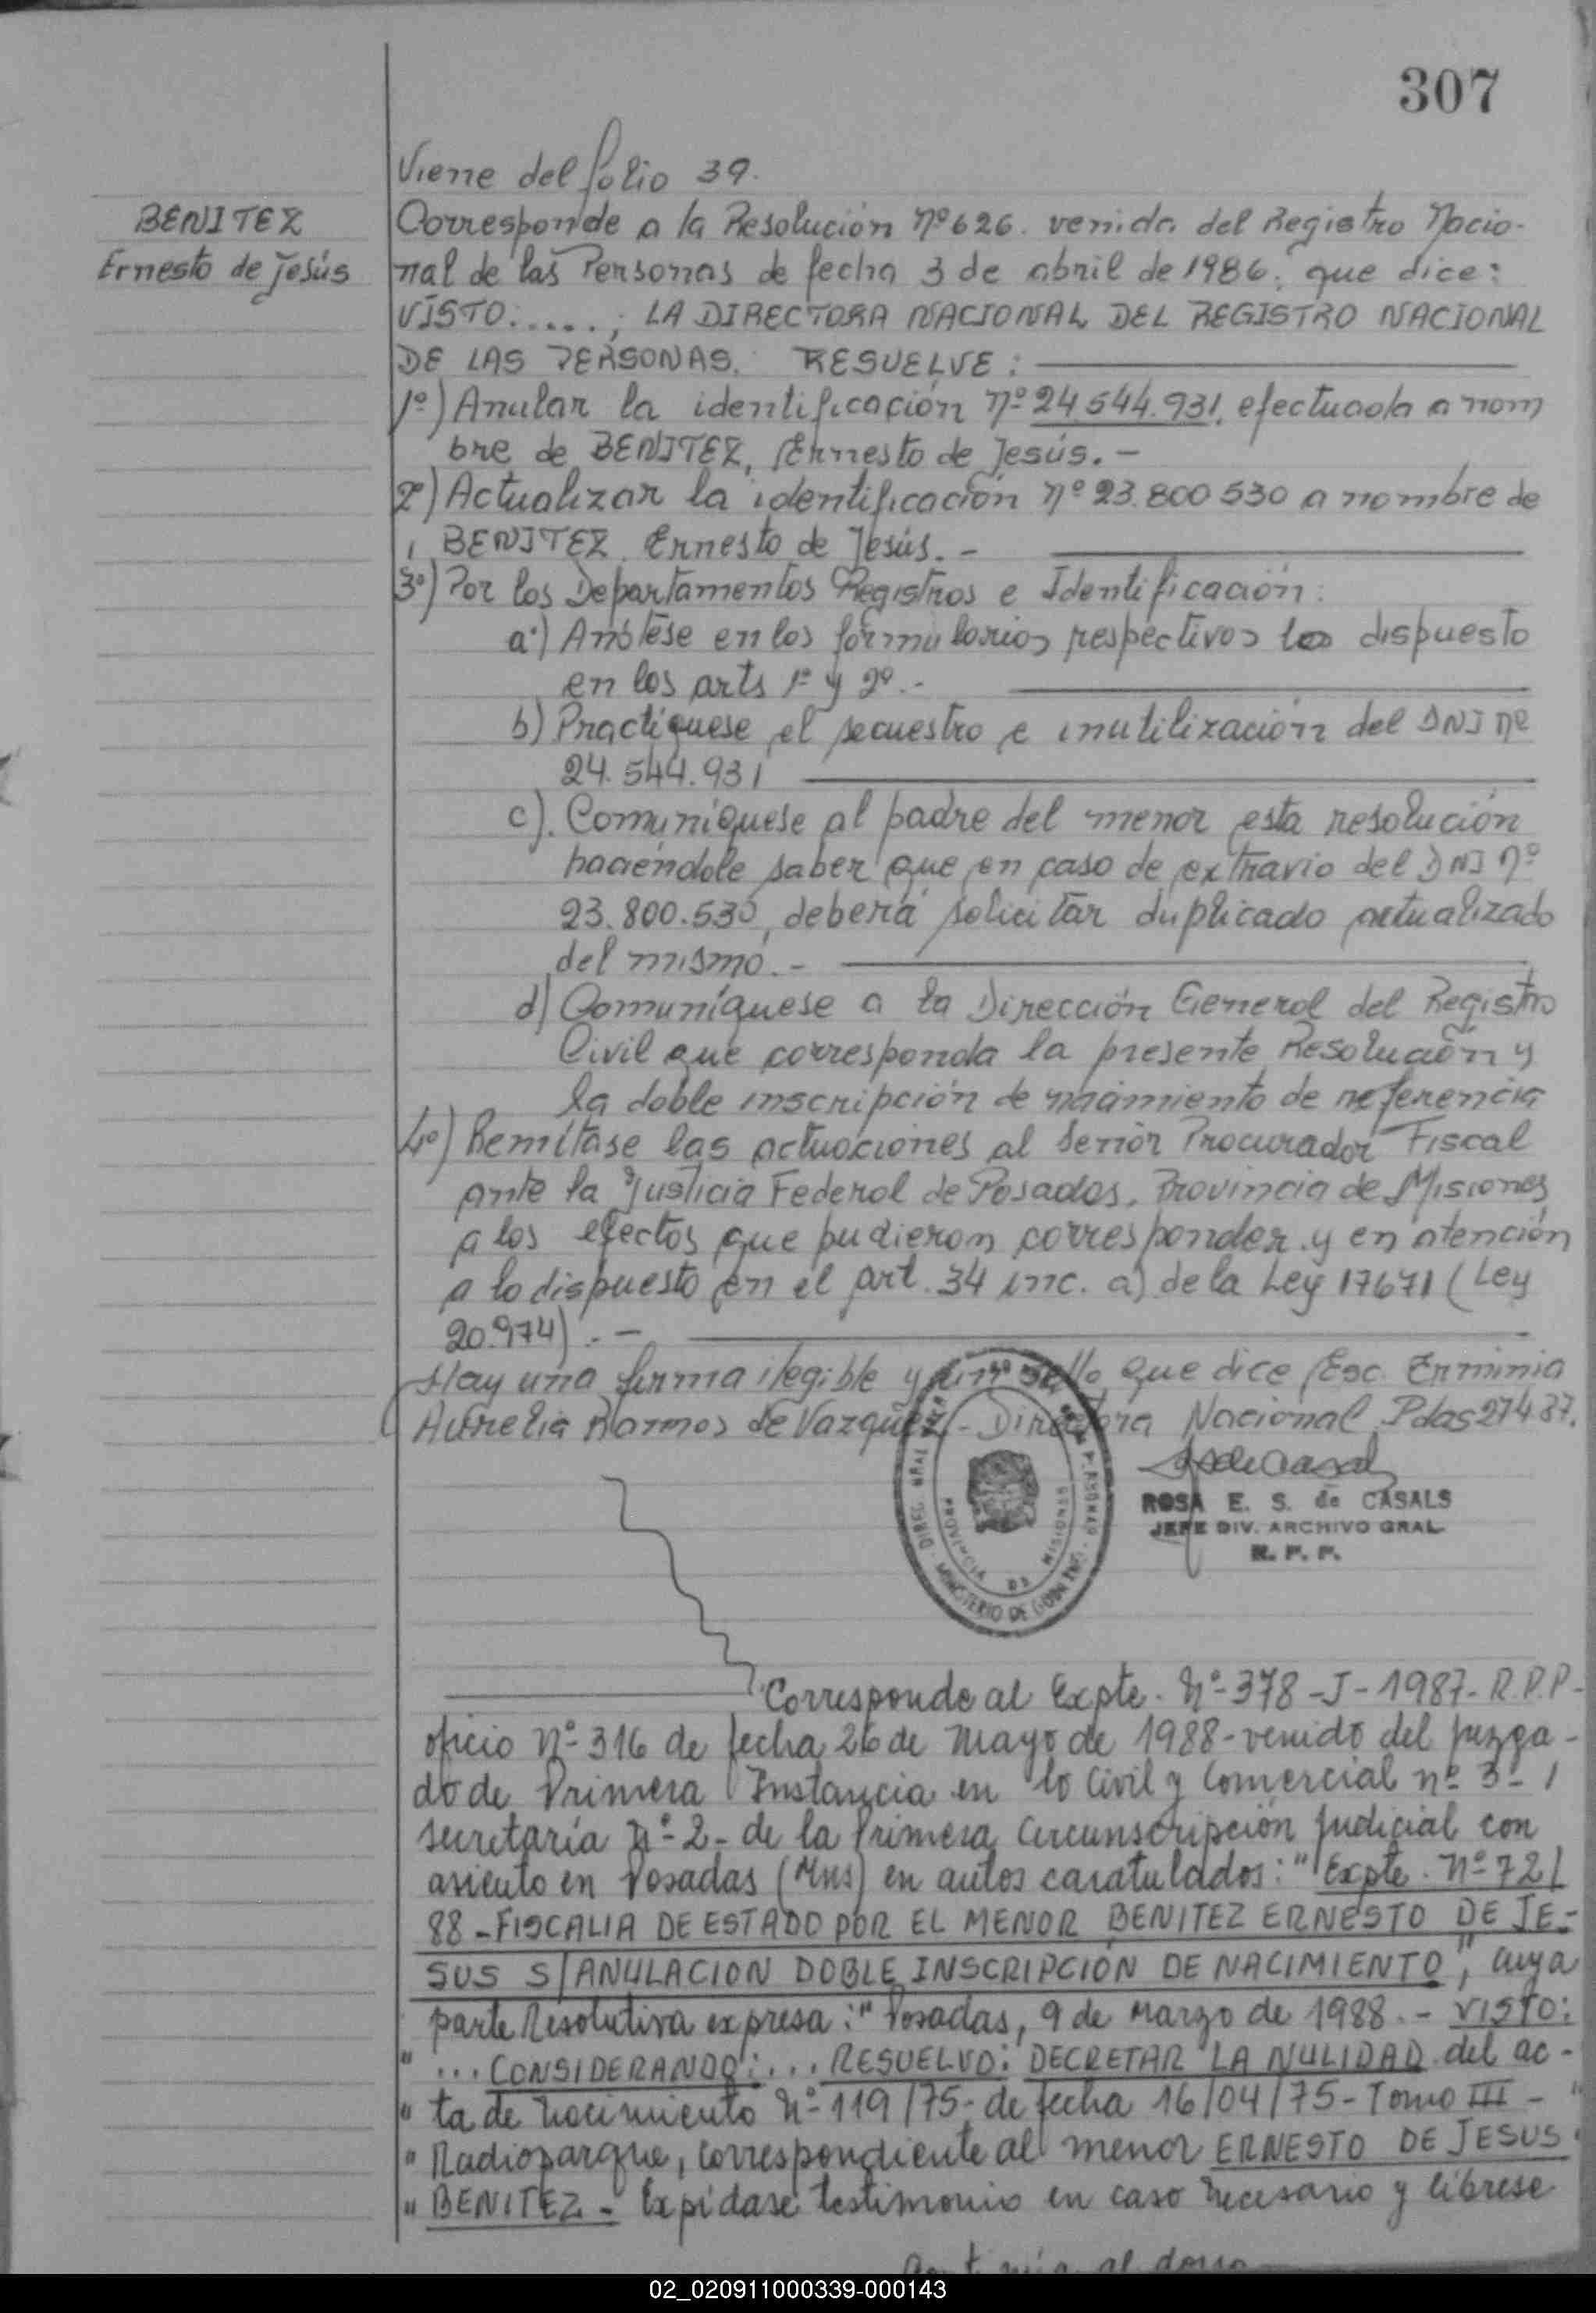 307
Viene del folio 39.
BENITEZ
Ernesto de Jesús
Corresponde a la Resolución nº 626. venida del Registro Nacio-
nal de las Personas de fecha 3 de abril de 1986, que dice:
VISTO:.....; LA DIRECTORA NACIONAL DEL REGISTRO NACIONAL
DE LAS PERSONAS. RESUELVE:
1º) Anular la identificación nº 24.544.931, efectuada a nom
bre de BENITEZ, Ernesto de Jesús.-
2º) Actualizar la identificación nº 23.800 530 a nombre de
BENITEZ Ernesto de Jesús.-
3º) Por los Departamentos Registros e Identificación:
a) Anótese en los formularios respectivos lo dispuesto
en los arts 1º y 2º.-
b) Practíquese el secuestro e inutilización del DNI nº
24.544.931
c). Comuníquese al padre del menor esta resolución
haciéndole saber que en caso de extravio del DNI nº
23.800.530, deberá solicitar duplicado actualizado
del mismo.-
d) Comuníquese a la Dirección General del Registro
Civil que corresponda la presente Resolución y
la doble inscripción de nacimiento de referencia
4º) Remítase las actuaciones al Señor Procurador Fiscal
ante la Justicia Federal de Posadas, Provincia de Misiones
a los efectos que pudieran corresponder y en atención
a lo dispuesto en el art. 34 inc. a) de la Ley 17671 (Ley
20.974).-
Hay una firma ilegible y un sello que dice Esc. Erminia
Aurelia Ramos de Vazquez - Directora Nacional Pdas 27 4 87.
PROVINCIA DE MISIONES
MINISTERIO DE GOBIERNO
ROSA E. S. de CASALS
JEFE DIV. ARCHIVO GRAL.
R. P. P.
Corresponde al Expte. Nº 378-J-1987- R.P.P-
oficio Nº 316 de fecha 26 de Mayo de 1988 - venido del Juzga-
do de Primera Instancia en lo Civil y Comercial nº 3-
secretaría Nº 2- de la Primera Circunscripción Judicial con
asiento en Posadas (Mns) en autos caratulados: "Expte. Nº 72/
88 - FISCALIA DE ESTADO POR EL MENOR BENITEZ ERNESTO DE JE-
SUS S/ANULACION DOBLE INSCRIPCIÓN DE NACIMIENTO", cuya
parte Resolutiva expresa: "Posadas, 9 de Marzo de 1988.- VISTO:
" ... CONSIDERANDO: ... RESUELVO: DECRETAR LA NULIDAD del ac-
" ta de nacimiento Nº 119/75- de fecha 16/04/75 - Tomo III - "
" Radioparque, correspondiente al menor ERNESTO DE JESUS "
" BENITEZ - Expídase testimonio en caso necesario y líbrese
al dorso
02_020911000339-000143